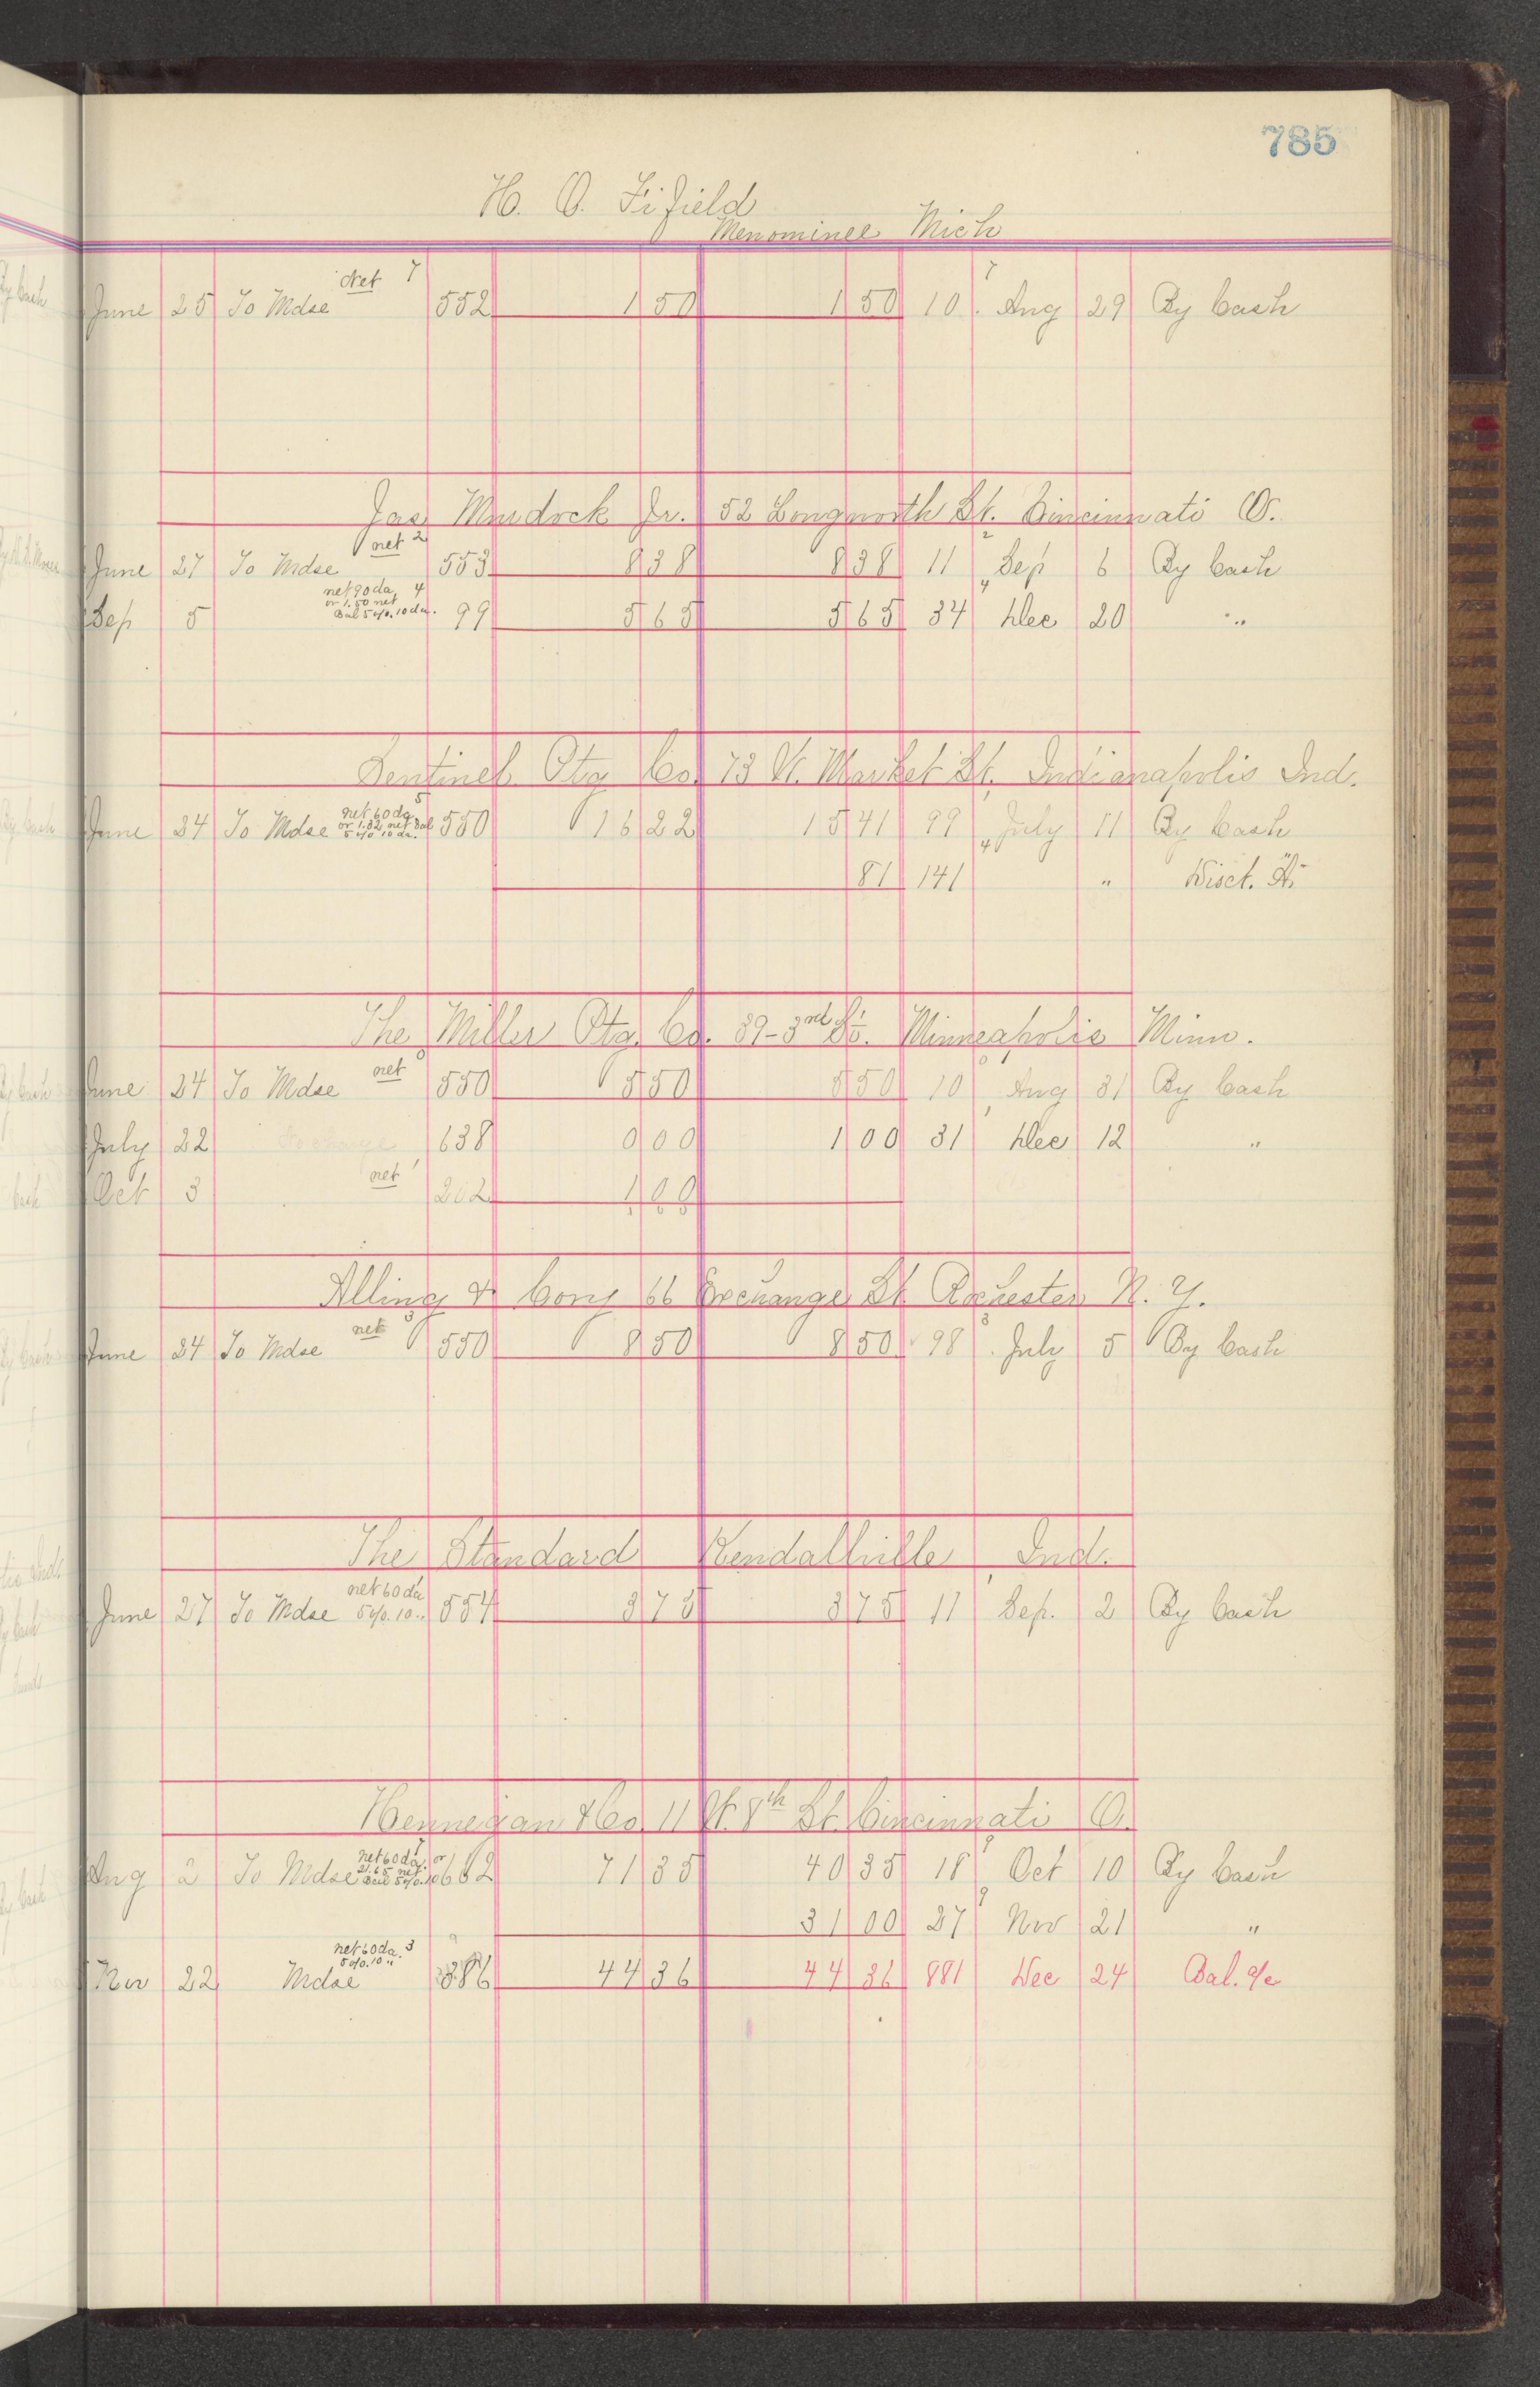 785
H. O. Fifield
Menominee Mich
June 25 To Mdse Net 7 552 1 50 1 50 10 7 Aug 29 By Cash
Jas Murdock Jr. 52 Longworth St. Cincinnati O.
June 27 To Mdse net 2 553 8 38 8 38 11 2 Sep 6 By Cash
Sep 5 net 90 da 4 or 1.50 net Bal 5 o/o. 10 da. 99 5 65 5 65 34 4 Dec 20 "
Sentinel Ptg Co. 73 W. Market St. Indianapolis Ind.
June 24 To Mdse net 60 da 5 or 1.32 net Bal 5 o/o 10 da. 550 16 22 15 41 99 4 July 11 By Cash
81 141 " Disct. "
The Miller Ptg. Co. 39-3rd St. Minneapolis Minn.
June 24 To Mdse net 550 5 50 5 50 10 Aug 31 By Cash
July 22 638 0 00 1 00 31 Dec 12 "
Oct 3 net 1 202 1 00
Alling & Cory 66 Exchange St Rochester N. Y.
June 24 To Mdse net 3 550 8 50 8 50 98 3 July 5 By Cash
The Standard Kendallville Ind.
June 27 To Mdse net 60 da 5 o/o. 10 " 554 3 75 3 75 11 Sep. 2 By Cash
Hennegan & Co. 11 W. 8th St. Cincinnati O.
Aug 2 To Mdse net 60 da. or 21.65 net Bal 5 o/o. 10 662 71 35 40 35 18 9 Oct 10 By Cash
31 00 27 9 Nov 21 "
Nov 22 Mdse net 60 da. 3 5 o/o. 10 " 386 44 36 44 36 881 Dec 24 Bal. a/c